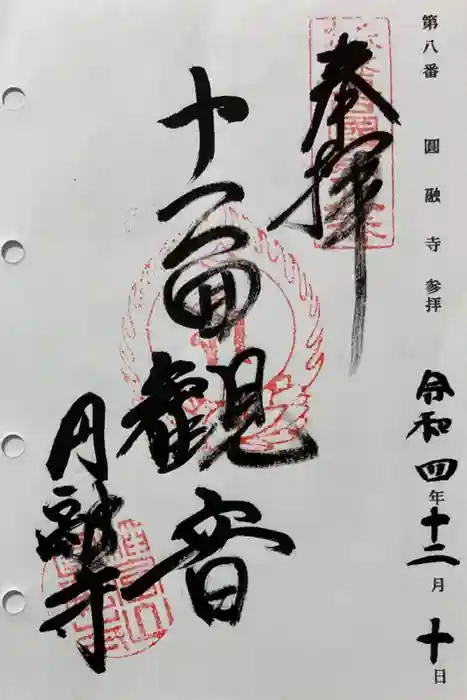 第八番 圓融寺 参拝
令和四年十二月十日
奉拝
十一面觀音
円融寺